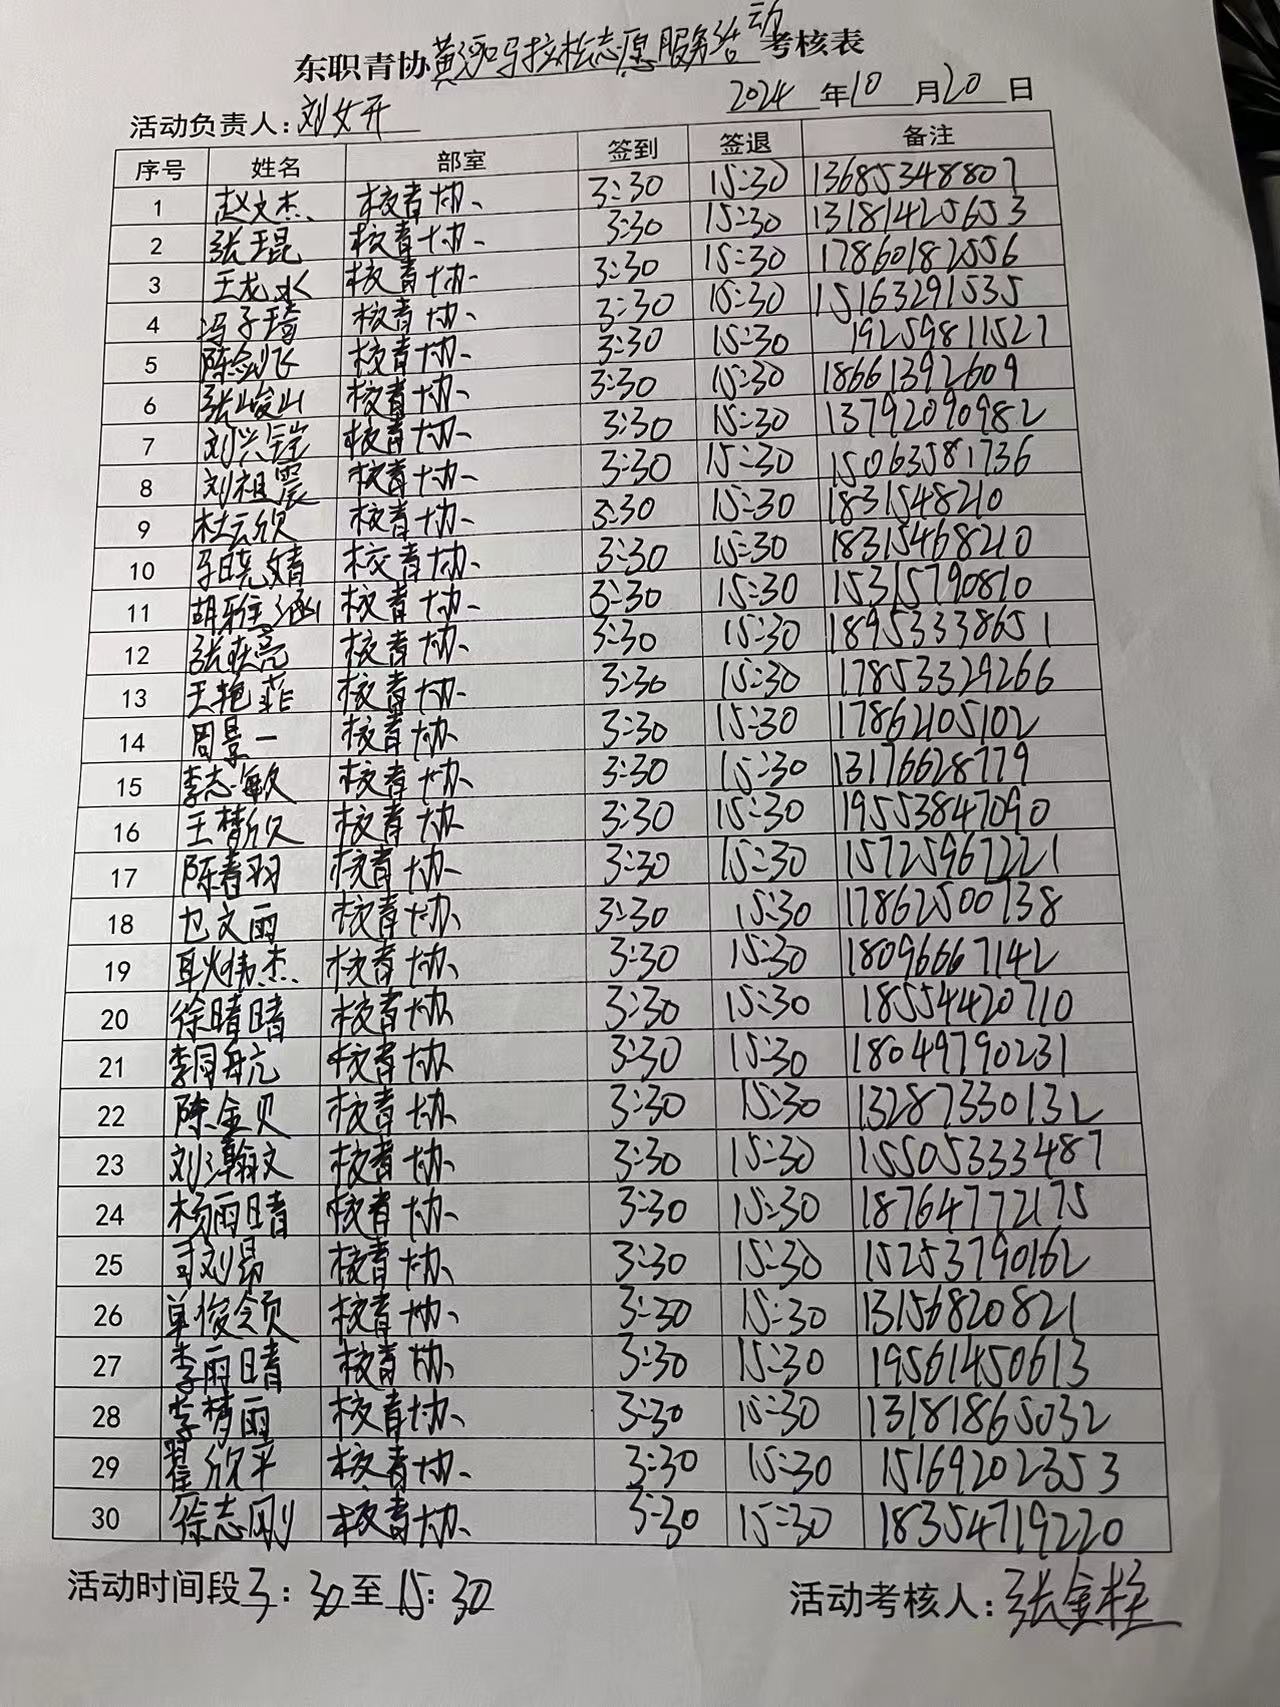 东职青协黄河马拉松志愿服务活动考核表
活动负责人:刘文开 2024年10月20日
序号 姓名 部室 签到 签退 备注
1 赵文杰 校青协 3:30 15:30 13685348807
2 张琨 校青协 3:30 15:30 13181425653
3 王龙水 校青协 3:30 15:30 17860182556
4 冯子琦 校青协 3:30 15:30 15163291535
5 陈剑飞 校青协 3:30 15:30 19259811527
6 张峻山 校青协 3:30 15:30 18661392609
7 刘兴锽 校青协 3:30 15:30 13792090982
8 刘祖震 校青协 3:30 15:30 15063581736
9 杜云欣 校青协 3:30 15:30 1831548210
10 于晓婧 校青协 3:30 15:30 18315468210
11 胡雅涵 校青协 3:30 15:30 15315790810
12 张庆亮 校青协 3:30 15:30 18953338651
13 王艳菲 校青协 3:30 15:30 17853329266
14 周景一 校青协 3:30 15:30 17862105102
15 李志敏 校青协 3:30 15:30 13176628779
16 王梦欣 校青协 3:30 15:30 19553847090
17 陈春羽 校青协 3:30 15:30 15725967221
18 文雨 校青协 3:30 15:30 17862500738
19 耿伟杰 校青协 3:30 15:30 18096667142
20 徐晴晴 校青协 3:30 15:30 18554420710
21 李同航 校青协 3:30 15:30 18049790231
22 陈金贝 校青协 3:30 15:30 13287330132
23 刘瀚文 校青协 3:30 15:30 155053333487
24 杨雨晴 校青协 3:30 15:30 18764772175
25 司刘昂 校青协 3:30 15:30 15253790162
26 单俊领 校青协 3:30 15:30 13156820821
27 李雨晴 校青协 3:30 15:30 19561450613
28 李梦雨 校青协 3:30 15:30 13181865032
29 翟欣平 校青协 3:30 15:30 15169202353
30 徐志刚 校青协 3:30 15:30 18354719220
活动时间段3:30至15:30 活动考核人:张金柱